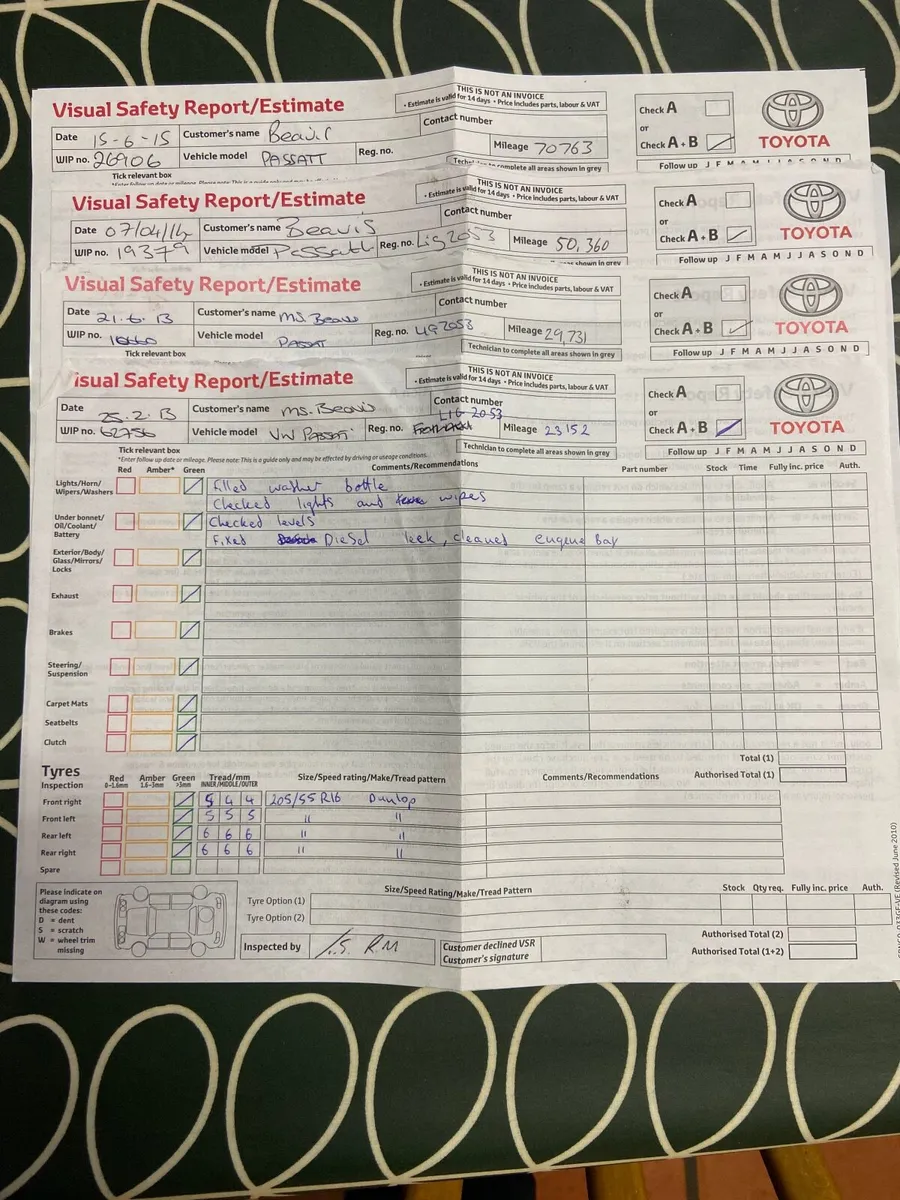 Visual Safety Report/Estimate
THIS IS NOT AN INVOICE
• Estimate is valid for 14 days • Price includes parts, labour & VAT
Date 15-6-15 Customer's name Contact number
WIP no. 26906 Vehicle model PASSATT Reg. no. Mileage 70763
Tick relevant box
Check A
or
Check A + B
TOYOTA
Follow up J F M A M J J A S O N D
Visual Safety Report/Estimate
THIS IS NOT AN INVOICE
• Estimate is valid for 14 days • Price includes parts, labour & VAT
Date 07/04/14 Customer's name Beavis Contact number
WIP no. 19379 Vehicle model Passatt Reg. no. Lig 2053 Mileage 50,360
shown in grey
Check A
or
Check A + B
TOYOTA
Follow up J F M A M J J A S O N D
Visual Safety Report/Estimate
THIS IS NOT AN INVOICE
• Estimate is valid for 14 days • Price includes parts, labour & VAT
Date 21.6.13 Customer's name Ms. Beavis Contact number
WIP no. Vehicle model PASSAT Reg. no. LIG2053 Mileage 29,731
Tick relevant box
Technician to complete all areas shown in grey
Check A
or
Check A + B
TOYOTA
Follow up J F M A M J J A S O N D
Visual Safety Report/Estimate
THIS IS NOT AN INVOICE
• Estimate is valid for 14 days • Price includes parts, labour & VAT
Date 25.2.13 Customer's name Ms. Beavis Contact number
LIG 2053
WIP no. 62756 Vehicle model VW Passat Reg. no. Mileage 23152
Technician to complete all areas shown in grey
Check A
or
Check A + B
TOYOTA
Follow up J F M A M J J A S O N D
Tick relevant box
*Enter follow up date or mileage. Please note: This is a guide only and may be effected by driving or useage conditions.
Red Amber* Green Comments/Recommendations Part number Stock Time Fully inc. price Auth.
Lights/Horn/ Filled washer bottle
Wipers/Washers Checked lights and wipes
Under bonnet/ Checked levels
Oil/Coolant/ Fixed Diesel leek, cleaned engene Bay
Battery
Exterior/Body/
Glass/Mirrors/
Locks
Exhaust
Brakes
Steering/
Suspension
Carpet Mats
Seatbelts
Clutch
Total (1)
Authorised Total (1)
Tyres
Inspection
Red Amber Green Tread/mm Size/Speed rating/Make/Tread pattern Comments/Recommendations
0-1.6mm 1.6-3mm >3mm INNER/MIDDLE/OUTER
Front right 5 4 4 205/55 R16 Dunlop
Front left 5 5 5 " "
Rear left 6 6 6 " "
Rear right 6 6 6 " "
Spare
Please indicate on
diagram using
these codes:
D = dent
S = scratch
W = wheel trim
missing
Size/Speed Rating/Make/Tread Pattern Stock Qty req. Fully inc. price Auth.
Tyre Option (1)
Tyre Option (2)
Authorised Total (2)
Authorised Total (1+2)
Inspected by
Customer declined VSR
Customer's signature
(Revised June 2010)